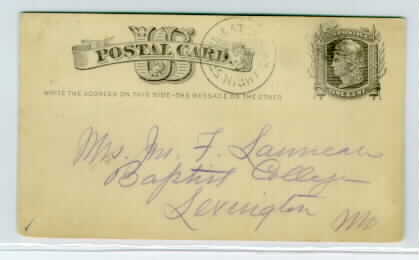 U S
POSTAL CARD
WRITE THE ADDRESS ON THIS SIDE-THE MESSAGE ON THE OTHER
NIGHT
ONE CENT
Mrs. M. F.
Baptist College
Lexington
Mo